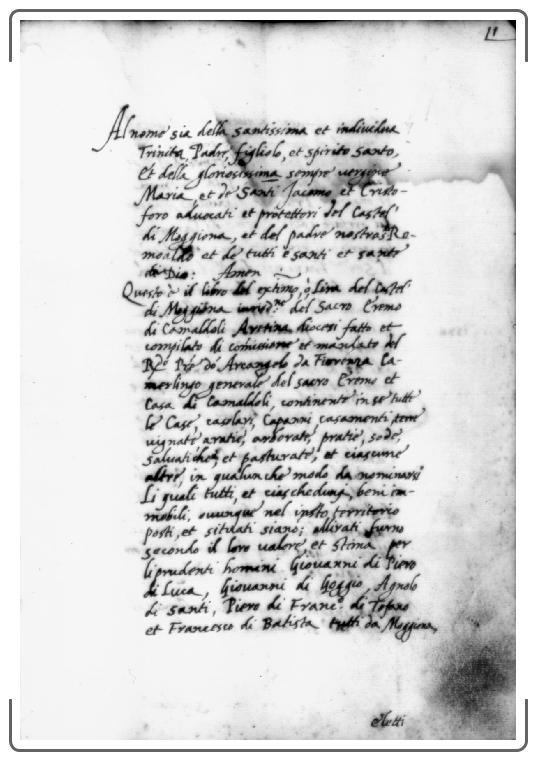 11
Al nome sia della santissima et individua
Trinita Padre, figliolo, et spirito santo,
Et della gloriosissima sempre vergine
Maria, et de Santi Jacomo et Cristo-
foro advocati et protettori del Castel
di Moggiona, et del padre nostro S. Ro-
moaldo et de tutti e santi et sante
de Dio: Amen
Questo è il libro del extimo, o Lira del Castel
di Moggiona del Sacro Eremo
di Camaldoli Aretina diocesi fatto et
compilato di comissione et mandato del
R.do P.re do. Arcangelo da Fiorenza Ca-
merlingo generale del sacro Eremo et
Casa di Camaldoli, continente in se tutte
le Case, casolari, Capanni, casamenti, terre
vignate aratie, arborate, pratie, sode,
salvatiche, et pasturate, et ciascune
altre, in qualunche modo da nominarsi
Li quali tutti, et ciascheduna, beni im-
mobili, ovunque nel territorio
posti, et situati siano; allirati furno
secondo il loro valore, et stima per
li prudenti homini Giovanni di Piero
di Luca, Giovanni di Goggio, Agnolo
di Santi, Piero di Franc.o di Tofano
et Francesco di Batista tutti da Moggiona,